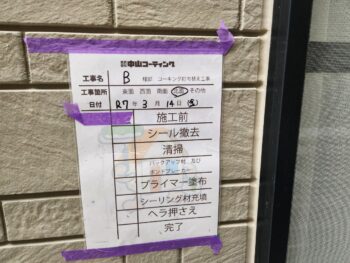 中山コーティング
工事名 B 様邸 コーキング打ち替え工事
工事箇所 東面 西面 南面 北面 その他
日付 R7年 3月 14日 (金)
施工前
シール撤去
清掃
バックアップ材 及び
ボンドブレーカー
プライマー塗布
シーリング材充填
ヘラ押さえ
完了